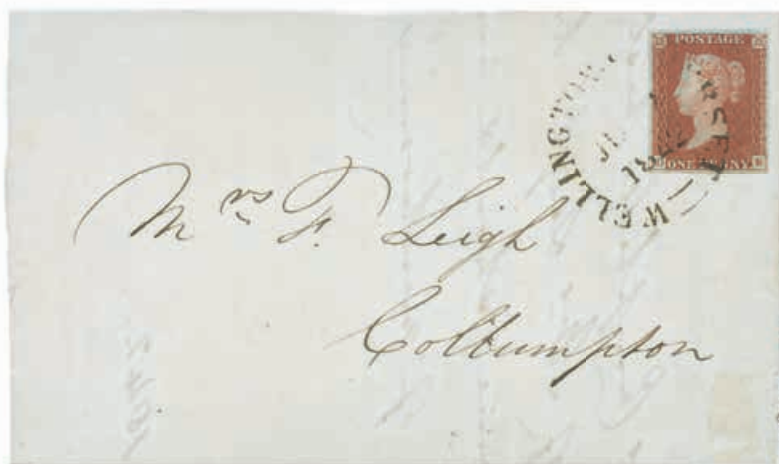 POSTAGE
ONE PENNY
WELLINGTON
Mrs F. Leigh
Collumpton